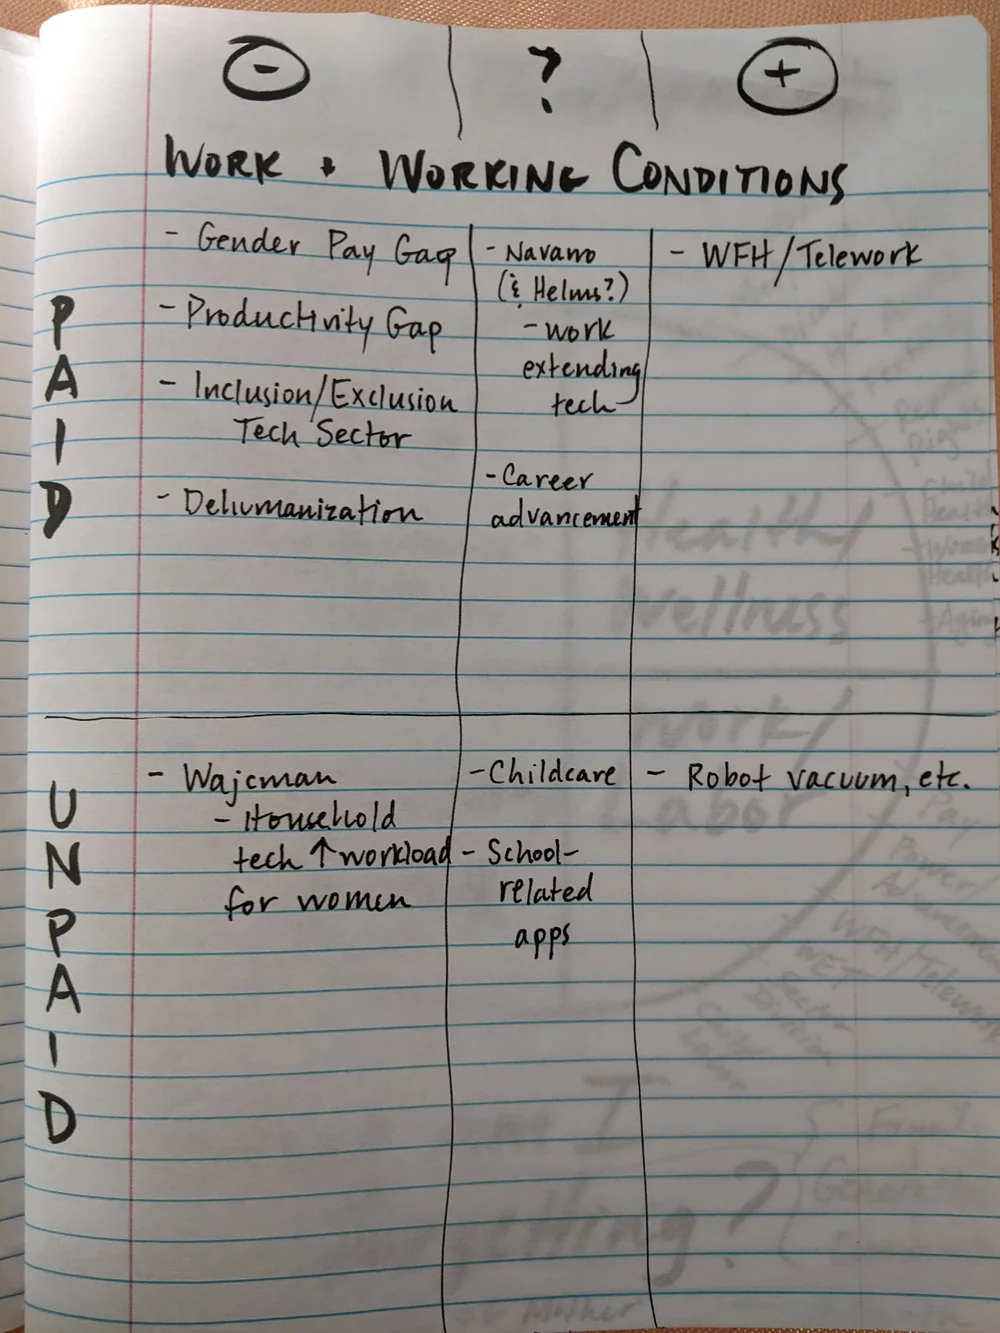 - ? +
WORK + WORKING CONDITIONS
PAID
- Gender Pay Gap
- Productivity Gap
- Inclusion/Exclusion
Tech Sector
- Dehumanization
- Navarro
(& Helms?)
- work
extending
tech
- Career
advancement
- WFH/Telework
UNPAID
- Wajcman
- Household
tech ↑ workload
for women
- Childcare
- School-
related
apps
- Robot vacuum, etc.
Health/
Wellness
Work/
Labor
Pay
WFH/Telework